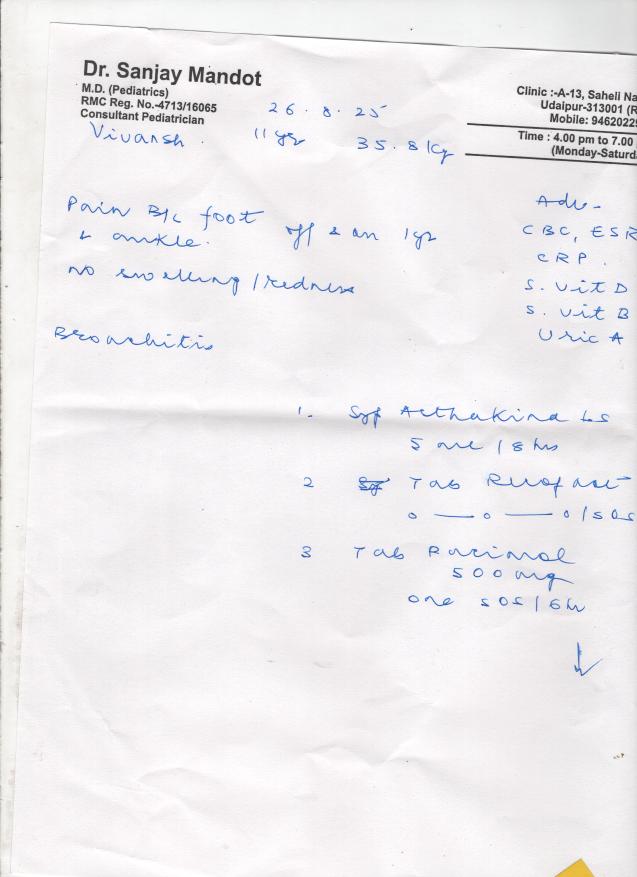 Dr. Sanjay Mandot
M.D. (Pediatrics)
RMC Reg. No.-4713/16065
Consultant Pediatrician
Clinic :-A-13, Saheli Na
Udaipur-313001 (R
Mobile: 94620229
Time : 4.00 pm to 7.00
(Monday-Saturda
26.8.25
Vivansh 11 yr 35.8 kg
Pain B/L foot off & on 1 yr
& ankle.
no swelling / redness
Bronchitis
Adv-
CBC, ESR
CRP.
S. Vit D
S. Vit B
Uric A
1. Syp LS
5 ml / 8 hrs
2 Tab
0 — 0 — 0 / SOS
3 Tab Pacimol
500 mg
one SOS / 6 hr